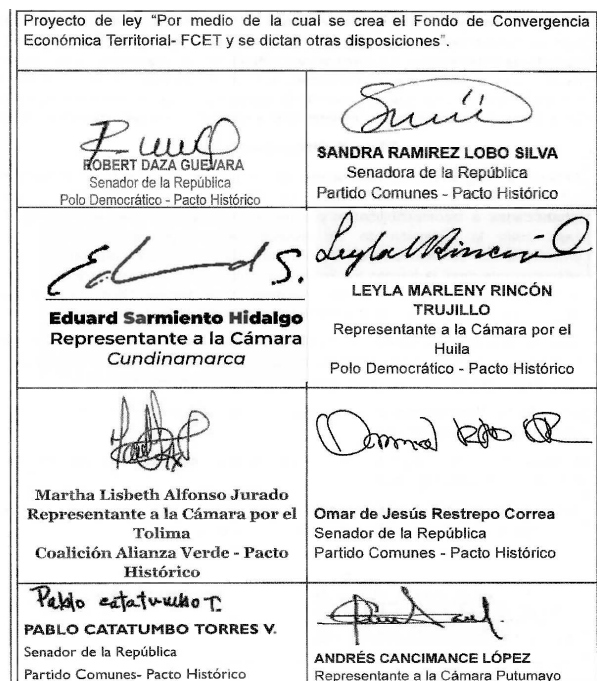 Proyecto de ley “Por medio de la cual se crea el Fondo de Convergencia
Económica Territorial- FCET y se dictan otras disposiciones”.
ROBERT DAZA GUEVARA
Senador de la República
Polo Democrático - Pacto Histórico
SANDRA RAMIREZ LOBO SILVA
Senadora de la República
Partido Comunes - Pacto Histórico
Eduard S.
Eduard Sarmiento Hidalgo
Representante a la Cámara
Cundinamarca
Leyla M Rincón
LEYLA MARLENY RINCÓN
TRUJILLO
Representante a la Cámara por el
Huila
Polo Democrático - Pacto Histórico
Martha Lisbeth Alfonso Jurado
Representante a la Cámara por el
Tolima
Coalición Alianza Verde - Pacto
Histórico
Omar de Jesús Restrepo Correa
Senador de la República
Partido Comunes - Pacto Histórico
Pablo catatumbo T.
PABLO CATATUMBO TORRES V.
Senador de la República
Partido Comunes- Pacto Histórico
ANDRÉS CANCIMANCE LÓPEZ
Representante a la Cámara Putumayo